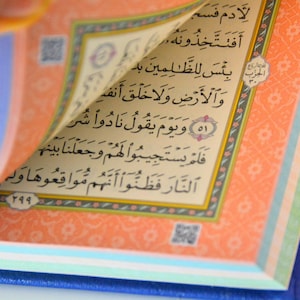 لِآدَمَ فَسَجَ
أَفَتَتَّخِذُونَهُ
بِئْسَ لِلظَّٰلِمِينَ بَدَ
وَٱلْأَرْضِ وَلَا خَلْقَ أَنفُ
٥١ وَيَوْمَ يَقُولُ نَادُوا۟ شُرَ
فَلَمْ يَسْتَجِيبُوا۟ لَهُمْ وَجَعَلْنَا بَيْنَهُم
ٱلنَّارَ فَظَنُّوٓا۟ أَنَّهُم مُّوَاقِعُوهَا وَلَ
٢٩٩